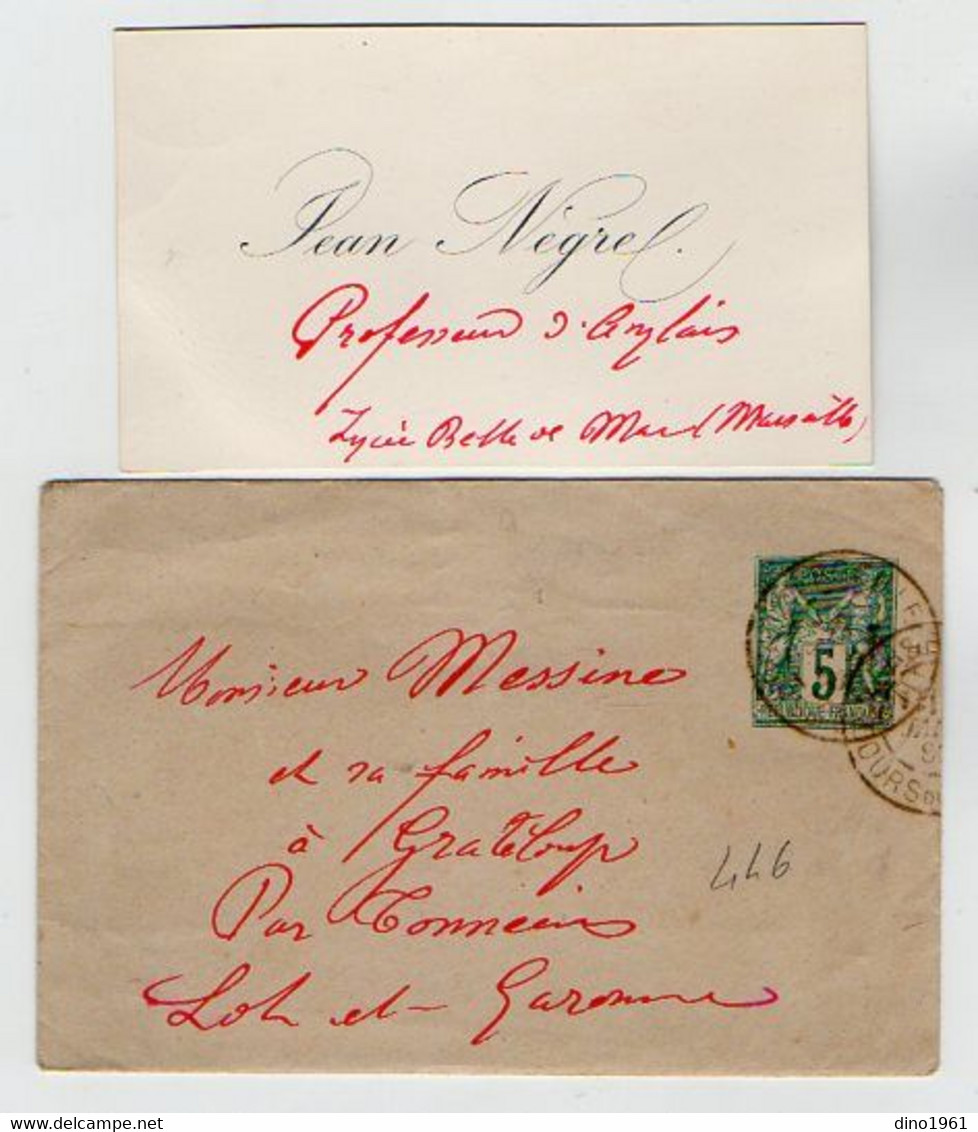 Jean Négrel.
Professeur d'Anglais
Lycée Belle de Mai (Marseille)
5
Monsieur Messine
et sa famille
à Grateloup
Par Tonneins
Lot et Garonne
446
COURS DU
dino1961